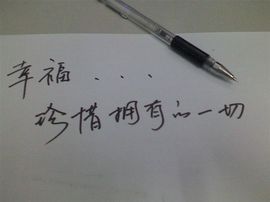 幸福...
珍惜拥有的一切